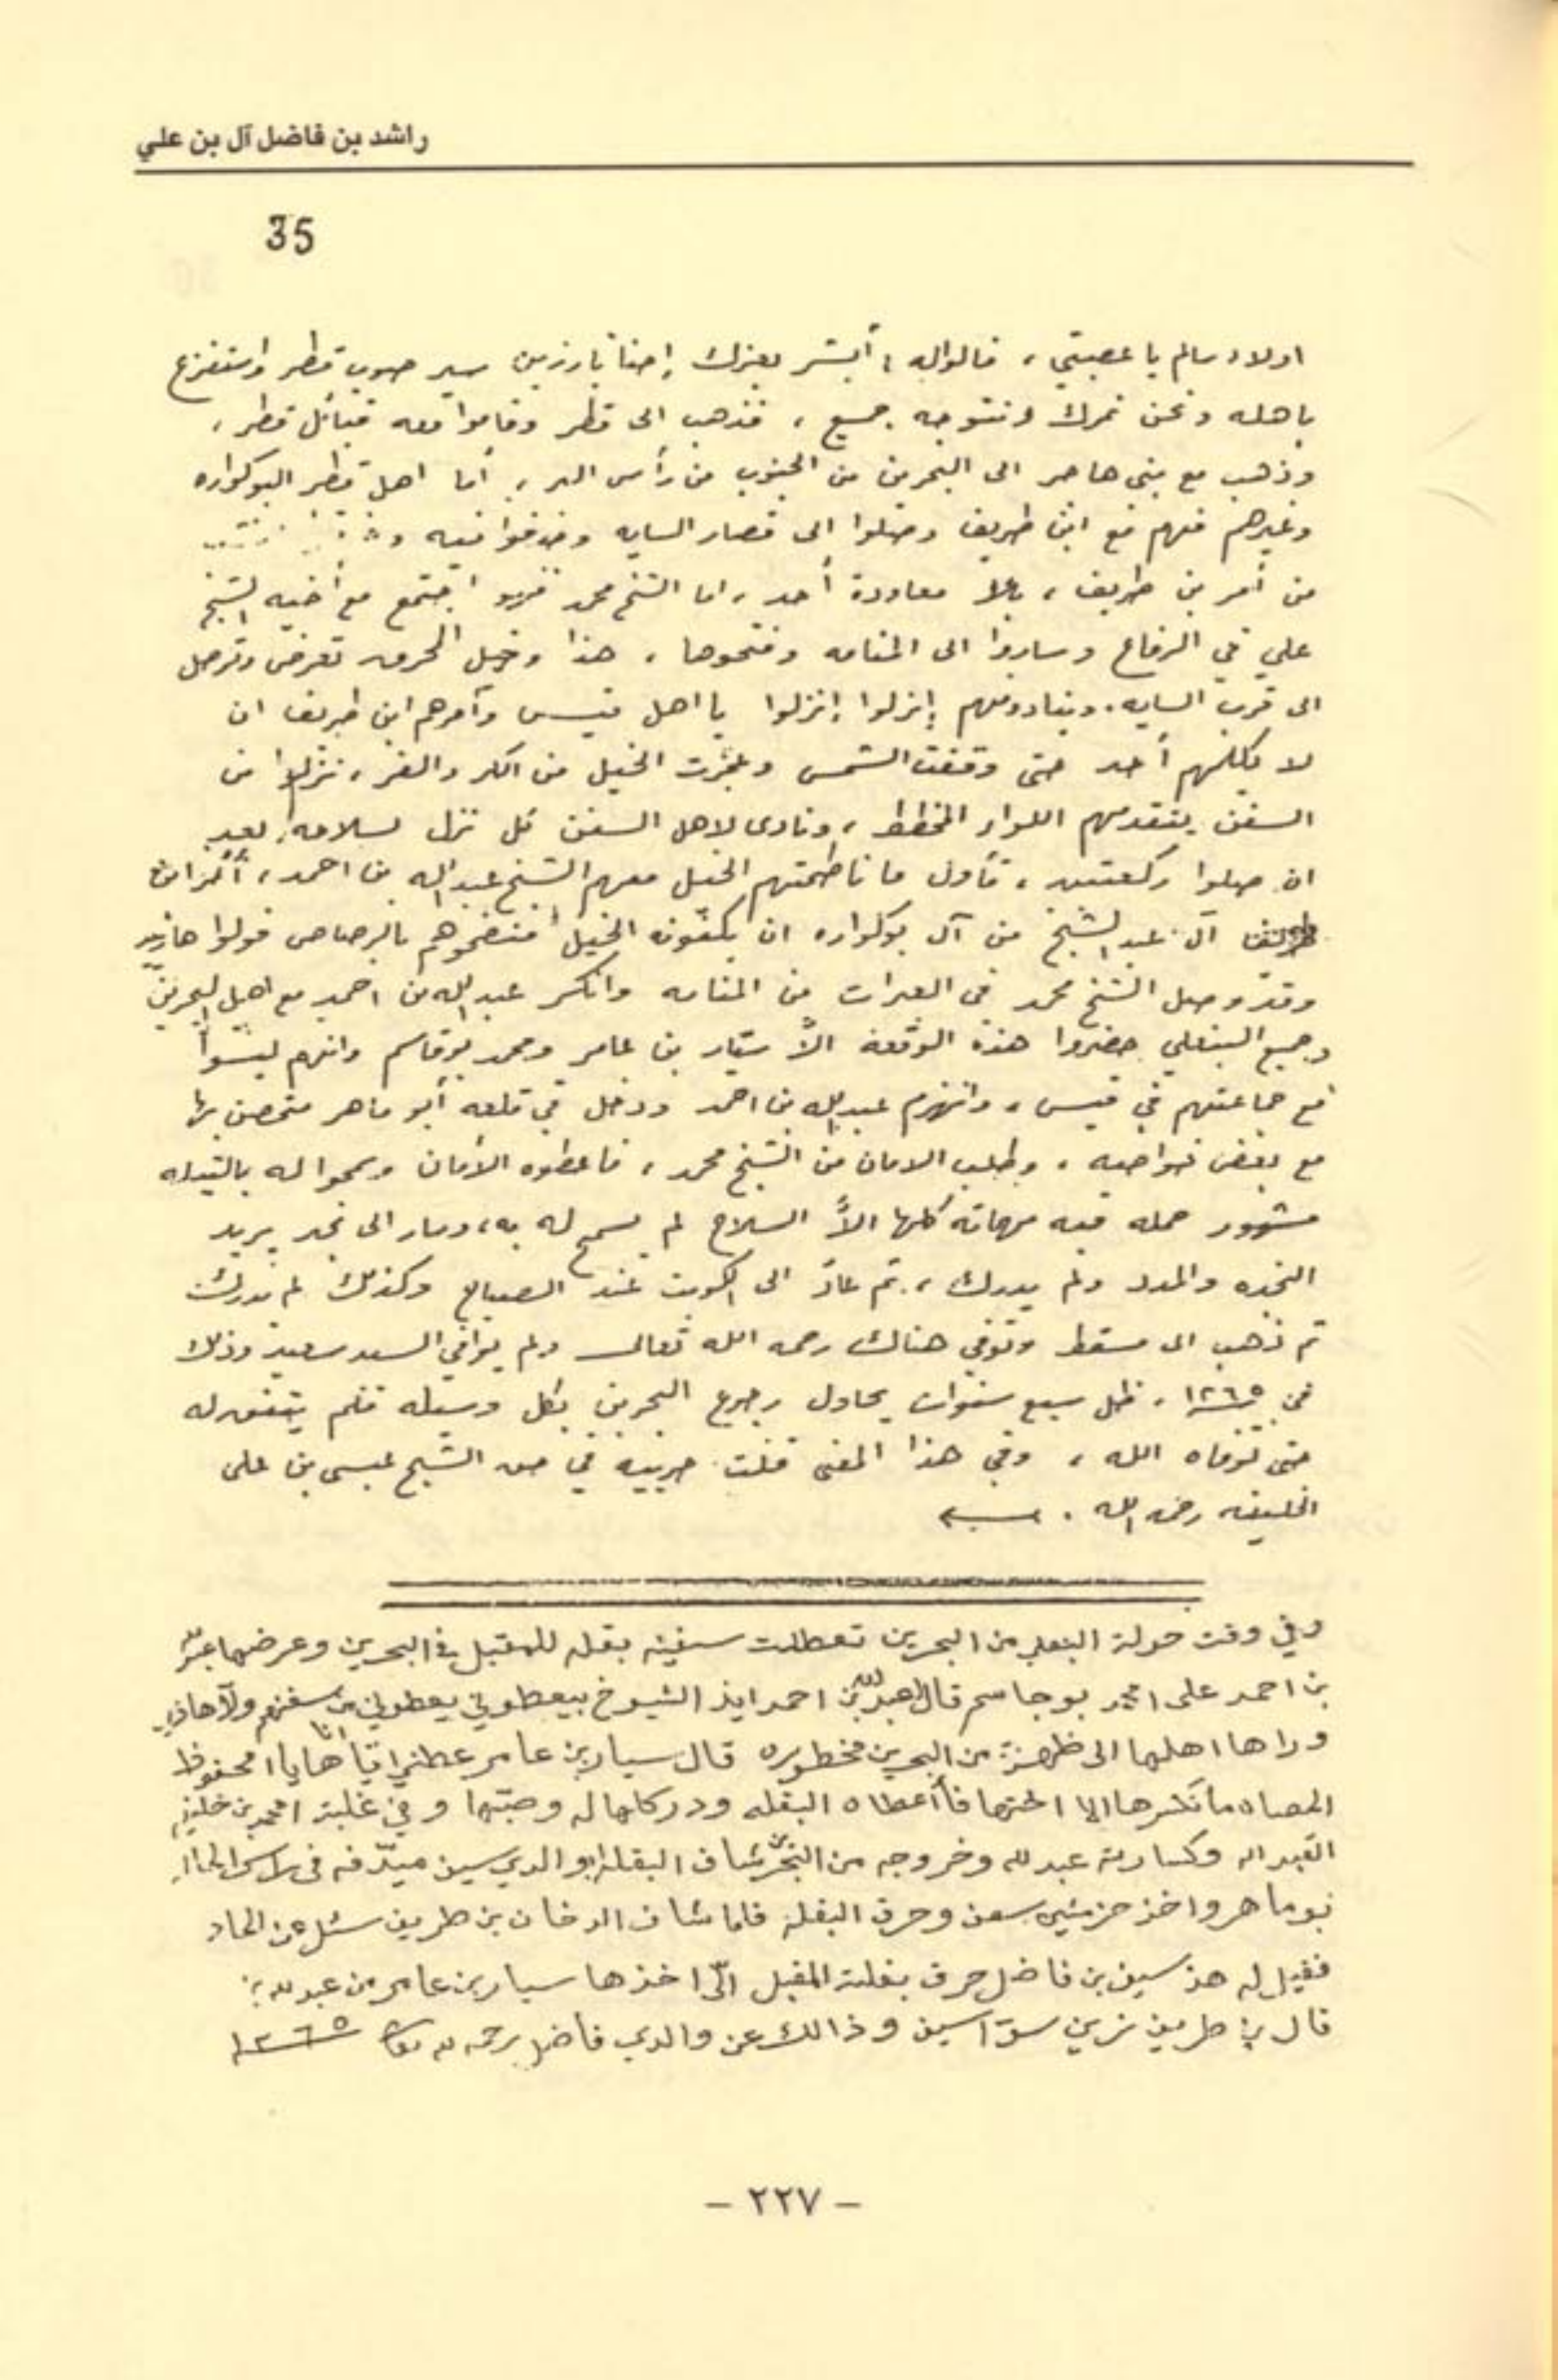 راشد بن فاضل آل بن علي
35
اولاد سالم يا عصبتي ، قالوا له ، أبشر بعزك إحنا بارزين سير صوب قطر واستفزع
باهله ونحن نمرك ونتوجه جميع ، فذهب الى قطر وقاموا معه قبائل قطر ،
وذهب مع بني هاجر الى البحرين من الجنوب من رأس البر ، أما اهل قطر البوكواره
وغيرهم فهم مع ابن طريف وصلوا الى قصار السايه وضفوا فيه
من أمر بن طريف ، بلا معاودة أحد ، اما الشيخ محمد فهو اجتمع مع أخيه الشيخ
علي في الرفاع وساروا الى المنامه وفتحوها ، هذا وخيل المحرق تعرض وترمل
الى قرب السايه . وينادونهم إنزلوا إنزلوا يا اهل قيس وآمرهم ابن طريف ان
لا يكلمهم أحد حتى وقفت الشمس وعجزت الخيل من الكر والفر ، نزلوا من
السفن يتقدمهم اللواء المخطط ، ونادى لاهل السفن كل نزل لسلامه ، بعد
ان صلوا ركعتين ، فأول ما ناطحتهم الخيل معهم الشيخ عبدالله بن احمد ، أمر ابن
طريف آل عبد الشيخ من آل بوكواره ان يكفون الخيل فنضحوهم بالرصاص فولوا هاربين
وقد وصل الشيخ محمد في العبرات من المنامه وانكسر عبدالله بن احمد مع اهل البحرين
وجميع البنعلي حضروا هذه الوقعة الاّ سيّار بن عامر ومحمد بوقاسم وانهم ليسوا
مع جماعتهم في قيس ، وانهزم عبدالله بن احمد ودخل في قلعه أبو ماهر متحصن بها
مع بعض خواصه ، وطلب الامان من الشيخ محمد ، فاعطوه الأمان وسمحوا له بالتيله
مشهور حمله فيه مهماته كلها الاّ السلاح لم يسمح له به ، وسار الى نجد يريد
النجده والمدد ولم يدرك ، ثم عاد الى الكويت عند الصباح وكذلك لم يدرك
ثم ذهب الى مسقط وتوفي هناك رحمه الله تعالى ولم يوافي السيد سعيد وذلك
في ١٢٦٥ ، ظل سبع سنوات يحاول رجوع البحرين بكل وسيله فلم يتفق له
حتى توفاه الله ، وفي هذا المعنى قلت حربيه في حق الشيخ عيسى بن علي
الخليفه رحمه الله .
وفي وقت حولة البنعلي من البحرين تعطلت سفينه بقله للمقبل في البحرين وعرضها عبدالله
بن احمد على امحمد بوجاسم قال لعبدالله بن احمد ايذ الشيوخ بيعطوني يعطوني من سفنهم ولا هاذي
وراها اهلها الى ظهرت من البحرين مخطوره قال سيار بن عامر عطني اياها انا يا المحفوظ
الحصاه ما تكسرها الا اختها فأعطاه البقله ودركلها له وصبّها وفي غلبة امحمد بن خليفه
القبداله وكسارية عبدلله وخروجه من البحرين شاف البقله ابو الدي سين ميدّفه في راس الحالة
بوماهر واخذ حزمتين سعن وحرق البقله فلما شاف الدخان بن طريف سئل عن الحاد
فقيل له هذ سيف بن فاضل حرق بقلة المقبل الّى اخذها سيار بن عامر من عبدلله
قال بن طريف نزين سوّا سيف وذالك عن والدي فاضل رحمه الله ١٢٦٥
– ٢٢٧ –